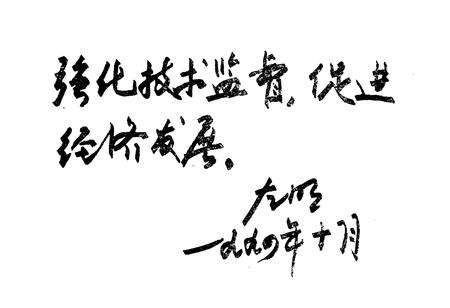 强化技术监督，促进
经济发展。
左明
一九九〇年十月